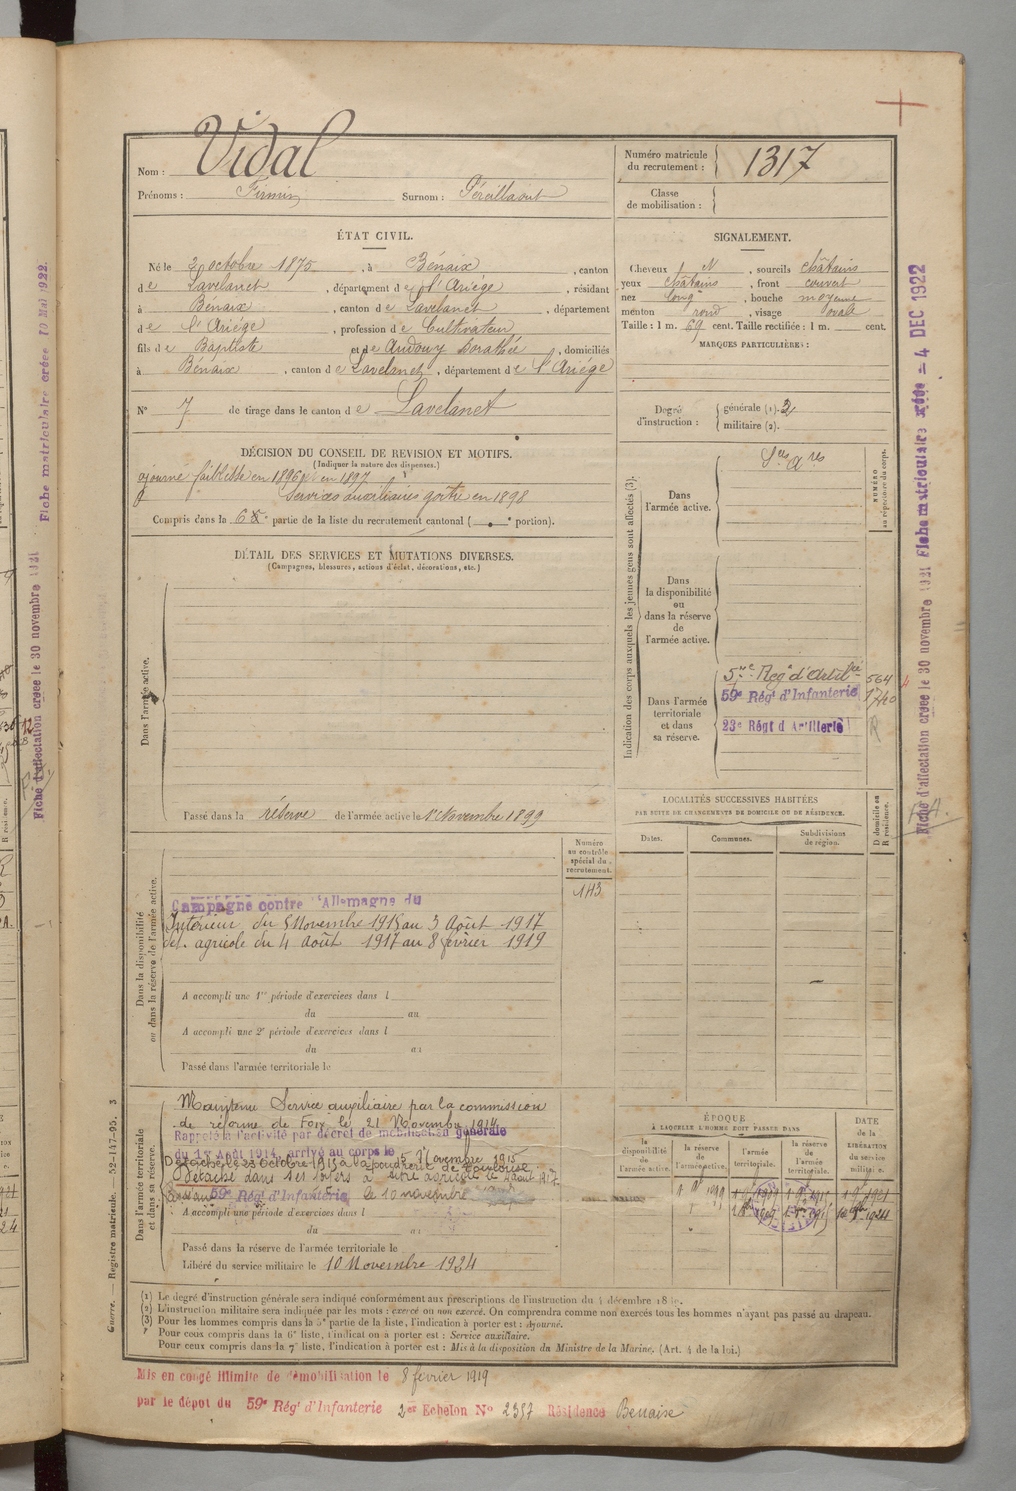 Vidal
Nom :
Prénoms : Firmin Surnom :
Numéro matricule
du recrutement : 1317
Classe
de mobilisation :
ÉTAT CIVIL.
Né le 2 octobre 1875, à Bénaix, canton
de Lavelanet, département de l'Ariège, résidant
à Bénaix, canton de Lavelanet, département
de l'Ariège, profession de Cultivateur
fils de Baptiste et de Audouy Dorathée, domiciliés
à Bénaix, canton de Lavelanet, département de l'Ariège
N° 7 de tirage dans le canton de Lavelanet
SIGNALEMENT.
Cheveux N, sourcils châtains
yeux châtains, front couvert
nez long, bouche moyenne
menton rond, visage ovale
Taille : 1 m. 69 cent. Taille rectifiée : 1 m. cent.
MARQUES PARTICULIÈRES :
Degré
d'instruction :
générale (1). 2
militaire (2).
DÉCISION DU CONSEIL DE REVISION ET MOTIFS.
(Indiquer la nature des dispenses.)
ajourné faiblesse en 1896 et en 1897
Services auxiliaires goitre en 1898
Compris dans la 6e partie de la liste du recrutement cantonal ( portion).
DÉTAIL DES SERVICES ET MUTATIONS DIVERSES.
(Campagnes, blessures, actions d'éclat, décorations, etc.)
Dans l'armée active.
Passé dans la réserve de l'armée active le 1er Novembre 1899
Indication des corps auxquels les jeunes gens sont affectés (3).
NUMÉRO
au répertoire du corps.
Dans
l'armée active.
Ses Ares
Dans
la disponibilité
ou
dans la réserve
de
l'armée active.
Dans l'armée
territoriale
et dans
sa réserve.
Reg' d'Artil
564
59e Rég' d'Infanterie
23e Régt d'Artillerie
Dans la disponibilité
ou dans la réserve de l'armée active.
Numéro
au contrôle
spécial du
recrutement.
143
Campagne contre l'Allemagne du
Intérieur du 5 Novembre 1915 au 3 Août 1917
dét. agricole du 4 Août 1917 au 8 février 1919
A accompli une 1re période d'exercices dans l
du au
A accompli une 2e période d'exercices dans l
du au
Passé dans l'armée territoriale le
LOCALITÉS SUCCESSIVES HABITÉES
PAR SUITE DE CHANGEMENTS DE DOMICILE OU DE RÉSIDENCE.
Dates. Communes. Subdivisions
de région.
D domicile ou
R résidence.
Dans l'armée territoriale
et dans sa réserve.
Maintenu Service auxiliaire par la commission
de réforme de Foix le 21 Novembre 1914
Rappelé à l'activité par décret de mobilisation générale
du 1er Août 1914, arrivé au corps le 5 Novembre 1915
Détaché le 23 Octobre 1915 à la poudrerie de Toulouse
Détaché dans ses foyers à titre agricole le 4 août 1917
59e Rég' d'Infanterie le 10 novembre
A accompli une période d'exercices dans l
du au
Passé dans la réserve de l'armée territoriale le
Libéré du service militaire le 10 Novembre 1924
ÉPOQUE
À LAQUELLE L'HOMME DOIT PASSER DANS
la
disponibilité
de
l'armée active.
la réserve
de
l'armée active.
l'armée
territoriale.
la réserve
de l'armée
territoriale.
DATE
de la
LIBÉRATION
du
service
militaire.
(1) Le degré d'instruction générale sera indiqué conformément aux prescriptions de l'instruction du 4 décembre
(2) L'instruction militaire sera indiquée par les mots : exercé ou non exercé. On comprendra comme non exercés tous les hommes n'ayant pas passé au drapeau.
(3) Pour les hommes compris dans la 5e partie de la liste, l'indication à porter est : Ajourné.
Pour ceux compris dans la 6e liste, l'indication à porter est : Service auxiliaire.
Pour ceux compris dans la 7e liste, l'indication à porter est : Mis à la disposition du Ministre de la Marine. (Art. 4 de la loi.)
Guerre. — Registre matricule. 52-147-95. 3
Mis en congé illimité de démobilisation le 8 février 1919
par le dépôt du 59e Rég' d'Infanterie Echelon N° 2357 Résidence Benaise
Fiche d'affectation créée le 30 novembre 1921 Fiche matriculaire créée 4 DEC 1922
Fiche d'affectation créée le 30 novembre 1921 Fiche matriculaire créée 10 Mai 1922.